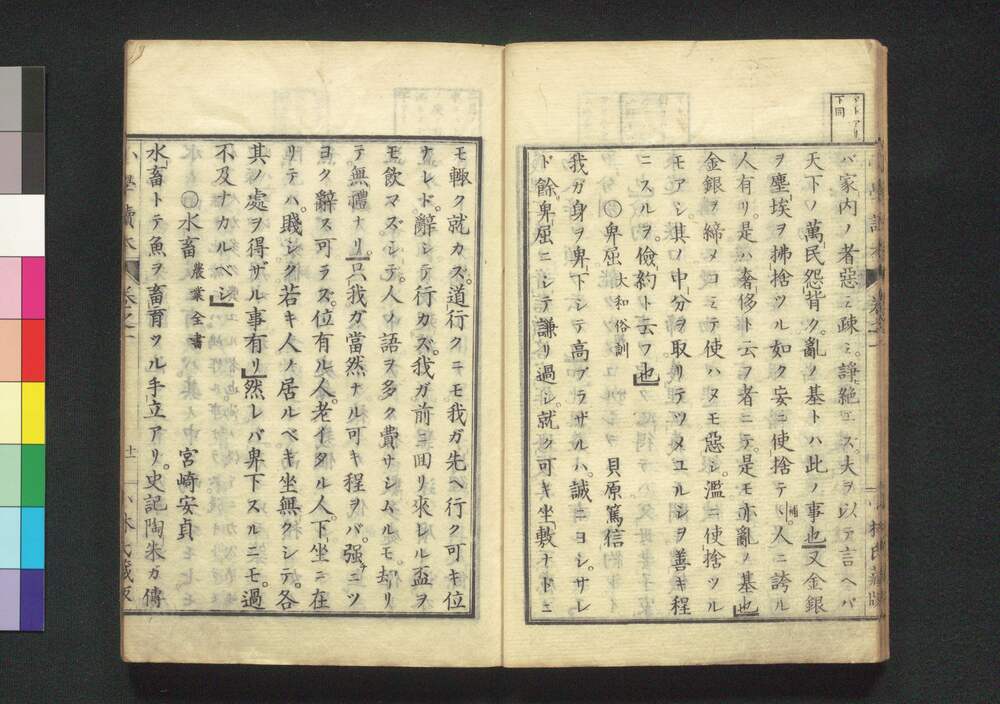 下同
バ家内ノ者惡ミ疎ミ諍絶エス。大ヲ以テ言ヘバ
天下ノ萬民怨背ク。亂ノ基トハ此ノ事也又金銀
ヲ塵埃ヲ拂捨ツル如ク妄ニ使捨テ補人ニ誇ル
人有リ。是ハ奢侈ト云フ者ニテ。是モ亦亂ノ基也
金銀ヲ締メコミテ使ハヌモ惡シ。濫ニ使捨ツル
モアシ。其ノ中分ヲ取リテツメユルシヲ善キ程
ニスルヲ。儉約ト云フ也
卑屈 大和俗訓 貝原篤信
我ガ身ヲ卑下シテ高ブラザルハ。誠ニヨシ。サレ
ド餘卑屈ニシテ謙リ過シ。就ク可キ坐敷ナドニ
モ輙ク就カス。道行クニモ我ガ先ヘ行ク可キ位
ナレド。辭シテ行カズ。我ガ前ニ囘リ來レル盃ヲ
モ飮マズシテ。人ノ語ヲ多ク費サシムルモ。却リ
テ無禮ナリ。只我ガ當然ナル可キ程ヲバ。强ニツ
ヨク辭ス可ラズ。位有ル人。老イタル人。下坐ニ在
リテハ。賤シク若キ人ノ居ルベキ坐無クシテ。各
其ノ處ヲ得ザル事有リ。然レバ卑下スルニモ。過
不及ナカルベシ
水畜 農業全書 宮崎安貞
水畜トテ魚ヲ畜育ツル手立アリ。史記陶朱ガ傳
小學讀本 卷之一 十一 小林氏藏版